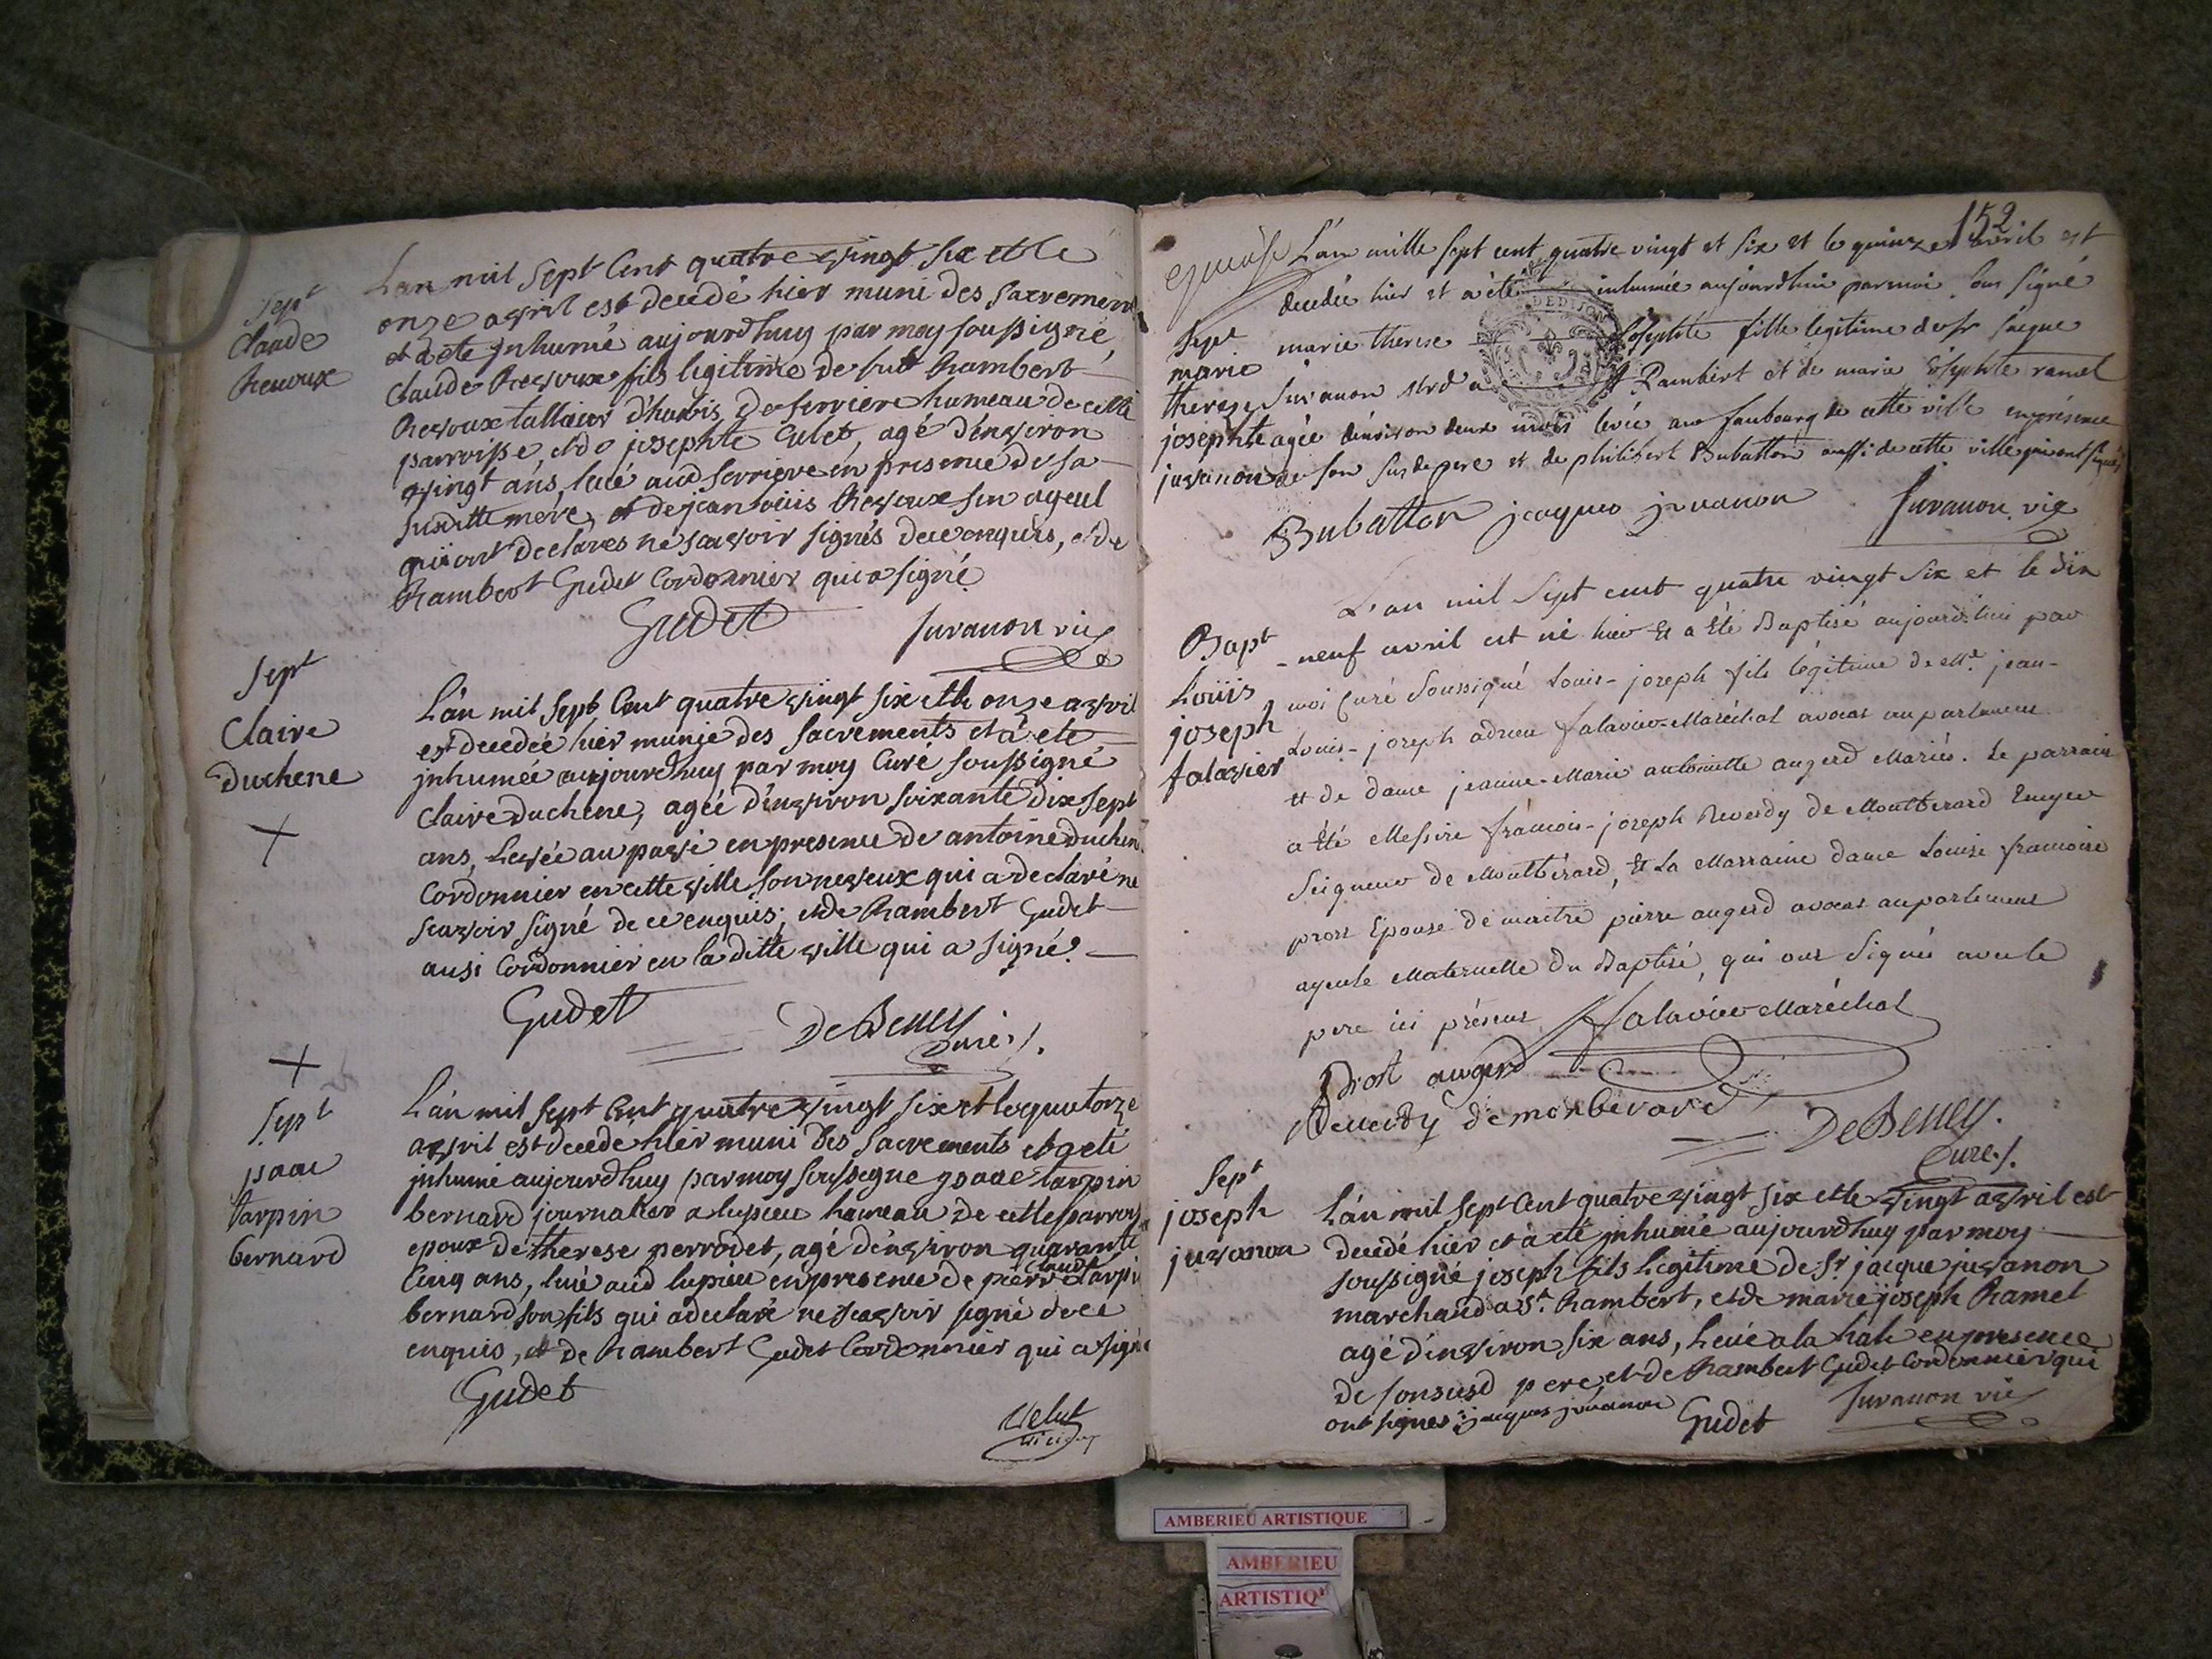 Sept
Claude
Revoux
L'an mil sept Cent quatre vingt six et le
onze avril est decedé hier muni des sacremens
et a ete inhumé aujourdhuy par moy soussigné,
Claude Revoux fils legitime de fut Rambert
Revoux tallieur d'habis, de serriere hameau de cette
parroisse, et de josephte Culet, agé d'environ
vingt ans, levé aud serriere en presence de sa
susditte mere, et de jean louis Revoux son ayeul
qui ont declarés ne scavoir signés de ce enquis, et de
Rambert Gudet Cordonnier qui a signé
Gudet
Juvanon vic
Sept
Claire
Duchene
L'an mil sept Cent quatre vingt six et le onze avril
est decedée hier munie des sacrements et a ete
inhumée aujourdhuy par moy Curé soussigné
Claire Duchene, agée d'environ soixante dix sept
ans, levée au pavé en presence de antoine Duchene
Cordonnier en cette ville son neveux qui a declaré ne
scavoir signé de ce enquis; et de Rambert Gudet
ausi Cordonnier en la ditte ville qui a signé.
Gudet
DeBeney
Curé
Sept
isaac
tarpin
bernard
L'an mil sept Cent quatre vingt six et le quatorze
avril est decedé hier muni des sacrements et a eté
inhumé aujourdhuy par moy soussigne isaac tarpin
bernard journalier a lupieu hameau de cette parroisse
epoux de therese perrodet, agé d'environ quarante
Cinq ans, levé aud lupieu en presence de pierre claude tarpin
bernard son fils qui a declaré ne scavoir signé de ce
enquis, et de Rambert Gudet Cordonnier qui a signé
Gudet
Velut
vicaire
152
L'an mille sept cent quatre vingt et six et le quinze avril est
decedée hier et a été inhumée aujourdhui par moi sou signé
DE DIJON
Sept
marie
therese
josephte
juvanon
marie therese Josephte fille legitime de sr jacque
Juvanon Mrd a St Rambert et de marie Josephte ramel
agée d'environ deux mois levée au faubourg de cette ville en présence
de son susd pere et de philibert Bubatton aussi de cette ville qui ont signés
Bubatton jacques juvanon
Juvanon vic
Bapt
Loüis
joseph
falavier
L'an mil sept cent quatre vingt six et le dix
-neuf avril est né hier et a été Baptisé aujourd'hui par
moi Curé soussigné Louis-joseph fils légitime de Me jean-
Louis-joseph adrien falavier-Maréchal avocat au parlement
et de dame jeanne-Marie antoinette augerd Mariés. Le parrain
a été Messire françois-joseph Reverdy de Montbérard Ecuyer
Seigneur de Montbérard, et La Marraine dame Louise françoise
prost Epouse de maitre pierre augerd avocat au parlement
ayeule Maternelle du Baptisé, qui ont signés avec le
pere ici présent
falavier-Maréchal
Prost augerd
Reverdy de monberard
DeBeney.
Curé.
Sept
joseph
juvanon
L'an mil sept Cent quatre vingt six et le vingt avril est
decedé hier et a eté inhumé aujourdhuy par moy
soussigné joseph fils legitime de Sr jacque juvanon
marchand a St Rambert, et de marie joseph Ramel
agé d'environ six ans, levé a la hale en presence
de son susd pere, et de Rambert Gudet Cordonnier qui
ont signés jacques juvanon
Gudet
Juvanon vic
AMBERIEU ARTISTIQUE
AMBERIEU
ARTISTIQ